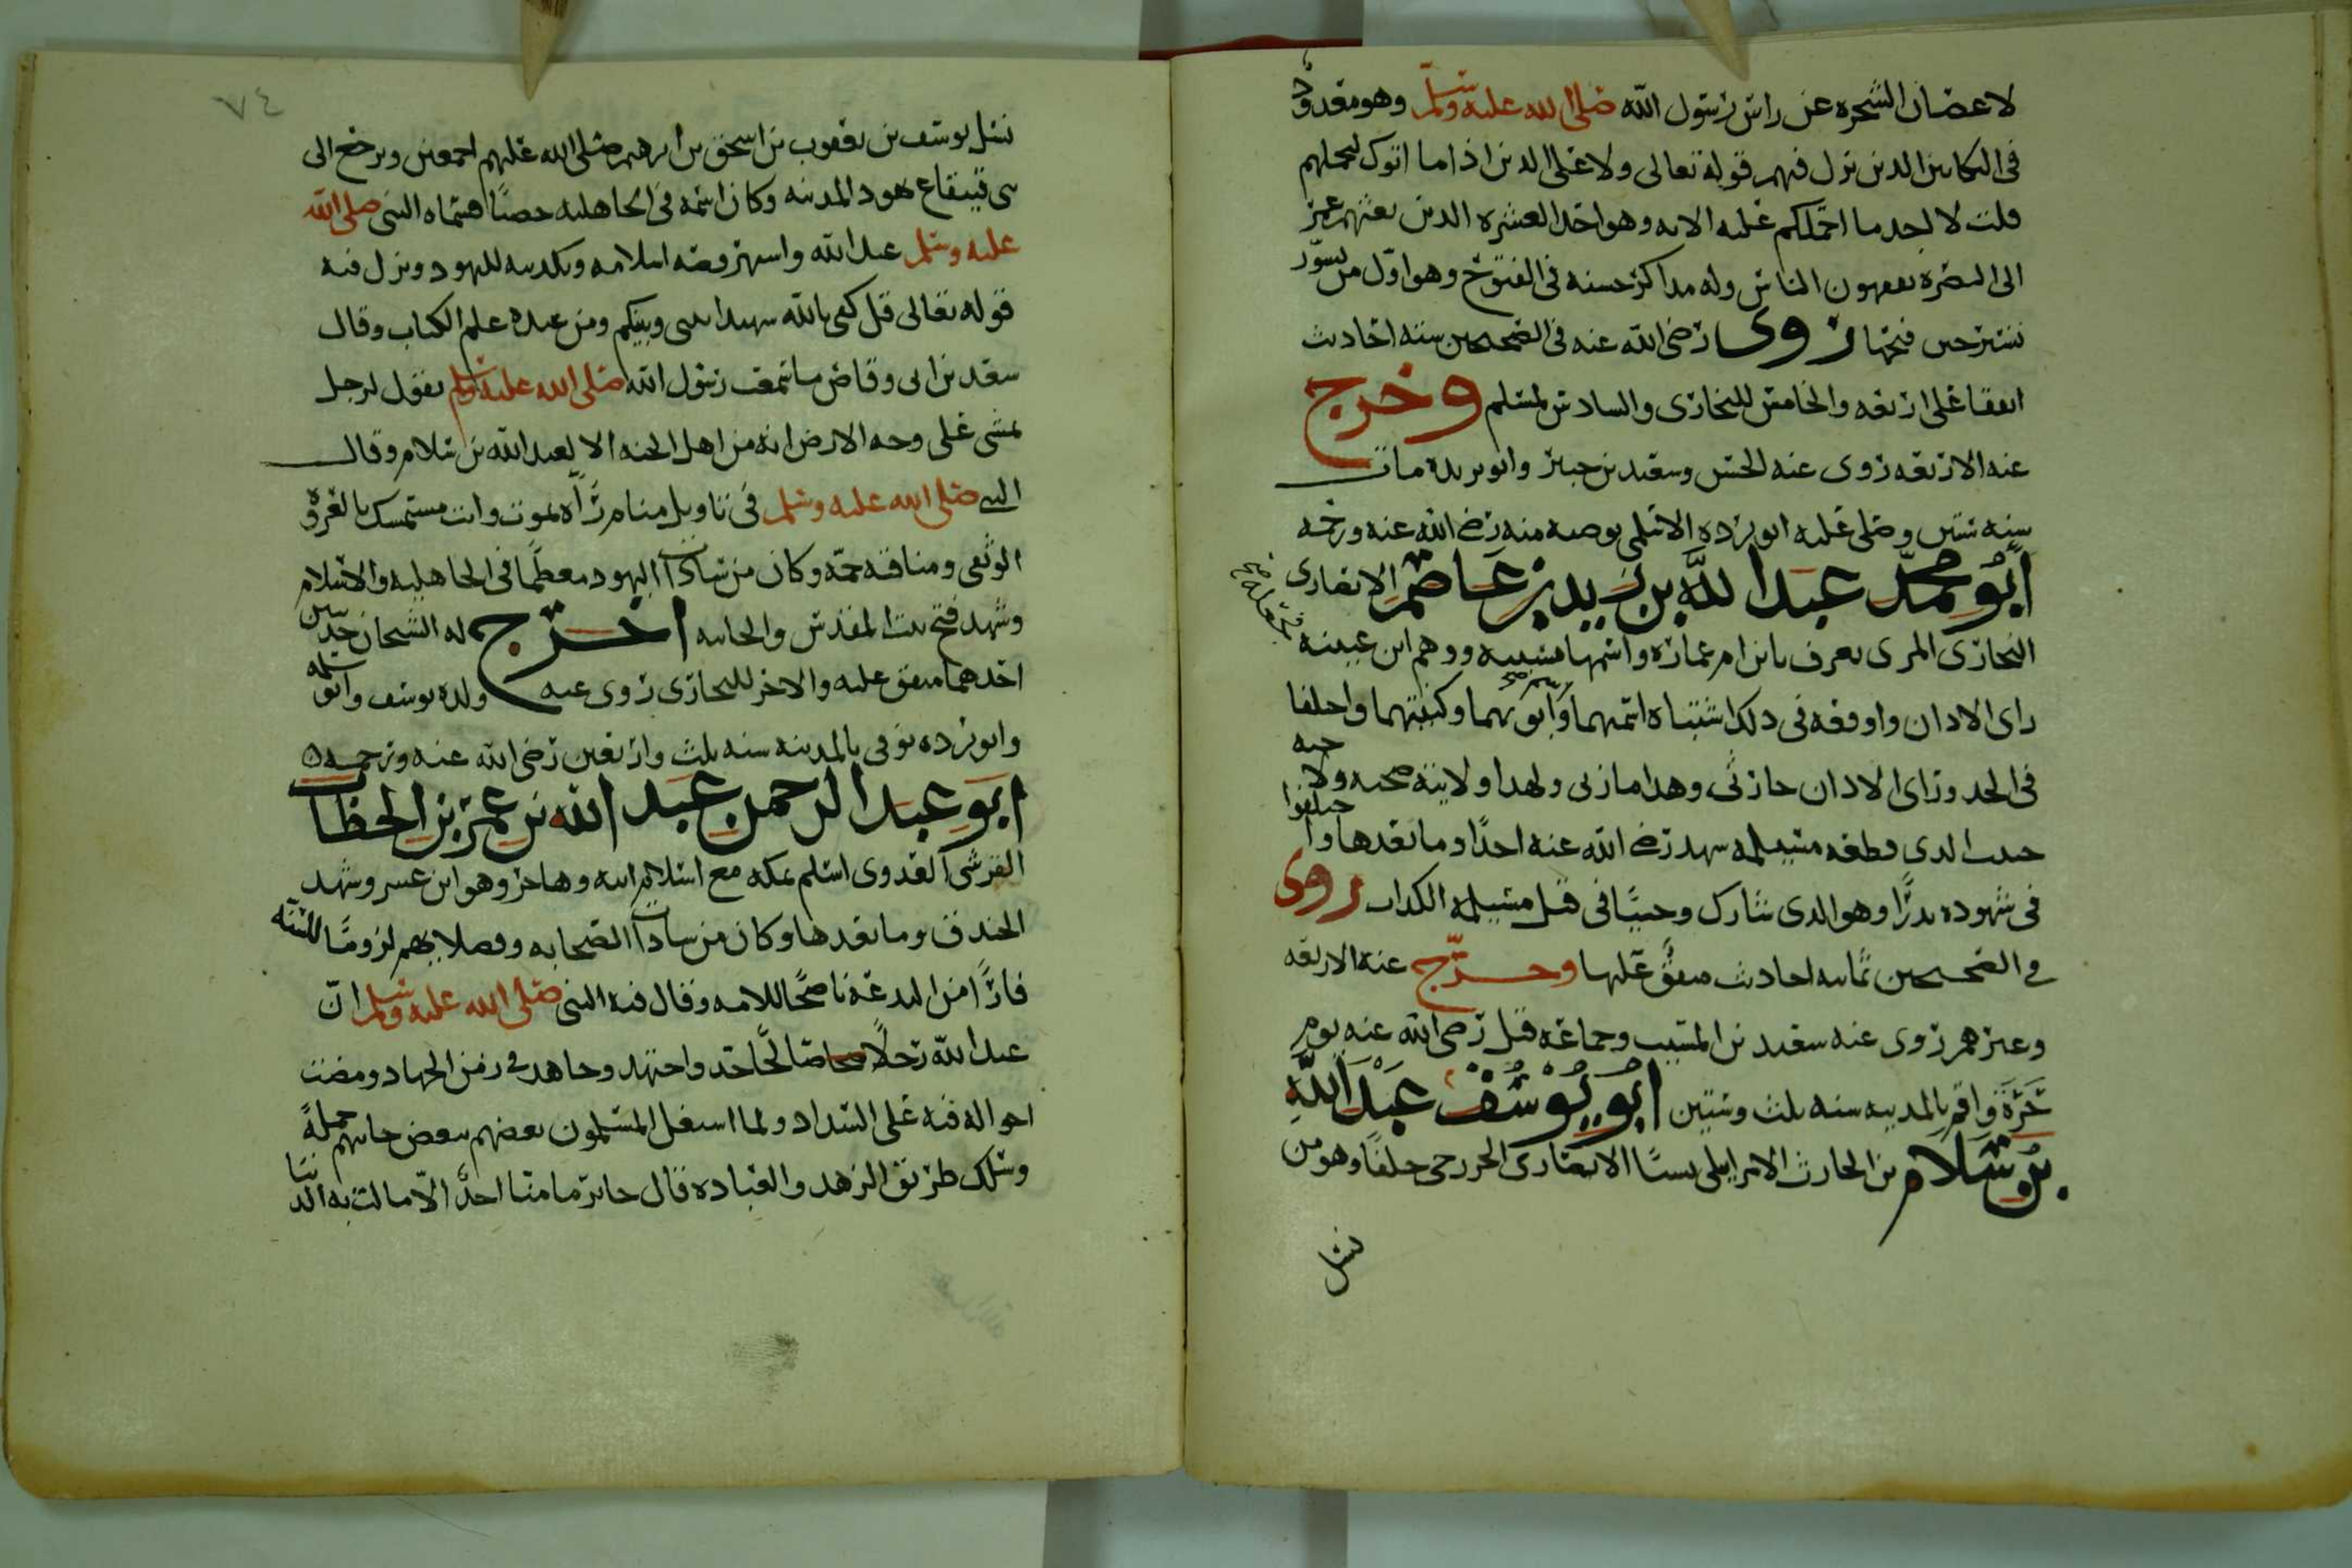 لاعضان الشجره عن راس رسول الله صلى الله عليه وسلم وهو معدود
فى البكايين الذين نزل فيهم قوله تعالى ولا على الذين اذا ما اتوك لتحملهم
قلت لا اجد ما احملكم عليه الايه وهو احد العشره الذين بعثهم عمر
الى البصره يفقهون الناس وله مذاكر حسنه فى الفتوح وهو اول من تسور
تستر حين فتحها روى رضى الله عنه فى الصحيحين سته احاديث
اتفقا على اربعه والخامس للبخارى والسادس لمسلم وخرج
عنه الاربعه روى عنه الحسن وسعيد بن جبير وابو بريده مات
سنه ستين وصلى عليه ابو برزه الاسلمى بوصيه منه رضى الله عنه ورحمه
ابو محمد عبد الله بن زيد بن عاصم الانصارى
النجارى المزنى يعرف بابن ام عماره واسمها نسيبه ووهم ابن عيينه
راى الاذان واوقعه فى ذلك اشتباه اسمهما وابويهما وكنيتهما واختلفا
فى الجد وراى الاذان حارثى وهذا مازنى ولهذا ولابيه صحبه ولاخيه
حبيب الذى قطعه مسيلمه شهد رضى الله عنه احدا وما بعدها واختلفوا
فى شهوده بدرا وهو الذى شارك وحشيا فى قتل مسيلمه الكذاب روى
فى الصحيحين ثمانيه احاديث متفق عليها وخرج عنه الاربعه
وغيرهم روى عنه سعيد بن المسيب وجماعه قتل رضى الله عنه يوم
حرة واقم بالمدينه سنه ثلث وستين ابو يوسف عبد الله
بن سلام بن الحارث الاسرايلى نسبا الانصارى الخزرجى حلفا وهو من
نسل
٧٤
نسل يوسف بن يعقوب بن اسحق بن ابرهيم صلى الله عليهم اجمعين ويرجع الى
بنى قينقاع يهود المدينه وكان اسمه فى الجاهليه حصينا فسماه النبى صلى الله
عليه وسلم عبد الله واشتهر قصه اسلامه وتكذيبه لليهود ونزل فيه
قوله تعالى قل كفى بالله شهيدا بينى وبينكم ومن عنده علم الكتاب وقال
سعد بن ابى وقاص ما سمعت رسول الله صلى الله عليه وسلم يقول لرجل
يمشى على وجه الارض انه من اهل الجنه الا لعبد الله بن سلام وقال
النبى صلى الله عليه وسلم فى تاويل منام رآه يموت وانت مستمسك بالعروة
الوثقى ومناقبه جمة وكان من سادات اليهود معظما فى الجاهليه والاسلام
وشهد فتح بيت المقدس والجابيه اخرج له الشيخان حديثين
احدهما متفق عليه والاخر للبخارى روى عنه ولده يوسف وابو سلمه
وابو برده توفى بالمدينه سنه ثلث واربعين رضى الله عنه ورحمه
ابو عبد الرحمن عبد الله بن عمر بن الخطاب
القرشى العدوى اسلم بمكه مع اسلام ابيه وهاجر وهو ابن عشر وشهد
الخندق وما بعدها وكان من سادات الصحابه وفضلائهم لزوما للسنه
فارا من البدعه ناصحا للامه وقال فيه النبى صلى الله عليه وسلم ان
عبد الله رجلا صالحا جد واجتهد وجاهد فى زمن الجهاد ومضت
احواله فيه على السداد ولما اشتغل المسلمون بعضهم ببعض جانبهم جملة
وسلك طريق الزهد والعباده قال جابر ما منا احد الا مالت به الدنيا